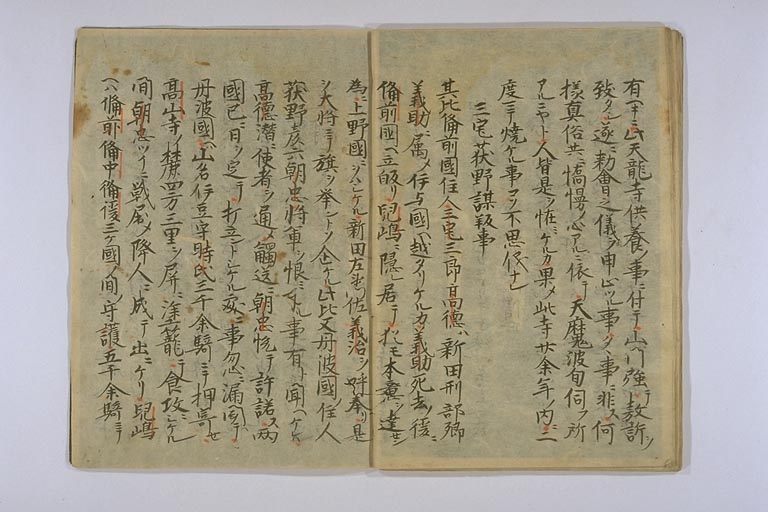 有ヘキニ此天龍寺供養ノ事ニ付テ山門強ニ致敖訴ヲ
致シ遂ニ勅會之儀ヲ申止ツル事タヽ事ニ非ス何
樣真俗共ニ憍慢ノ心アルニ依テ天魔波旬伺フ所
アルニヤト人皆是ヲ恠ミケルカ果メ此寺廿余年ノ内ニ二
度マテ焼ケル事コソ不思儀ナレ
三宅荻野謀叛事
其比備前國住人三宅三郎高德ハ新田刑部卿
義助ニ属メ伊与國ヘ越タリケルカ義助死去ノ後
備前國ヘ立皈リ児嶋ニ隠レ居テ猶モ本意ヲ達セン
為ニ上野國ニヲハシケル新田左衛門佐義治ヲ呼奉リ是
ヲ大将ニテ旗ヲ挙ントソ企ケル此比又丹波國ノ住人
荻野彦六朝忠将軍ヲ恨ミ申ス事有ト聞ヘケレハ
高德潜ニ使者ヲ通メ觸送ニ朝忠悦テ許諾ス両
國已ニ日ヲ定テ打立ントシケル処ニ事忽ニ漏聞テ
丹波國ヘハ山名伊豆守時氏三千余騎ニテ押寄セ
高山寺ノ麓四方三里ヲ屏ニ塗籠テ食攻ニシケル
間朝忠ツイニ戦屈メ降人ニ成テ出ニケリ児嶋
ヘハ備前備中備後三ヶ國ノ守護五千余騎ニテ